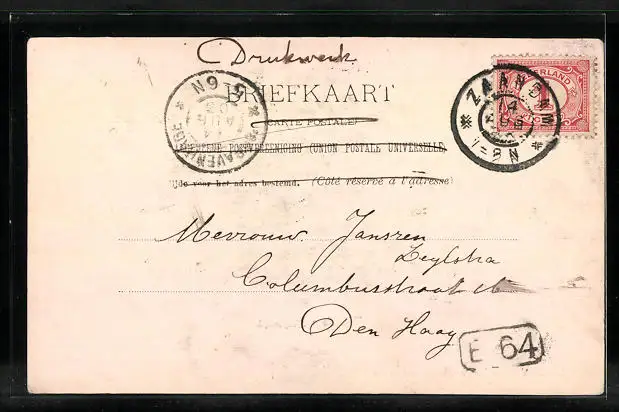 Drukwerk
BRIEFKAART
(CARTE POSTALE)
ALGEMEENE POSTVEREENIGING (UNION POSTALE UNIVERSELLE)
Zijde voor het adres bestemd. (Côté réservé à l'adresse)
ZAANDAM
14
7-8 N
NEDERLAND
5-6N
'S GRAVENHAGE
14
AUG
Mevrouw Janszen
Zeylstra
Columbusstraat
Den Haag
E 64